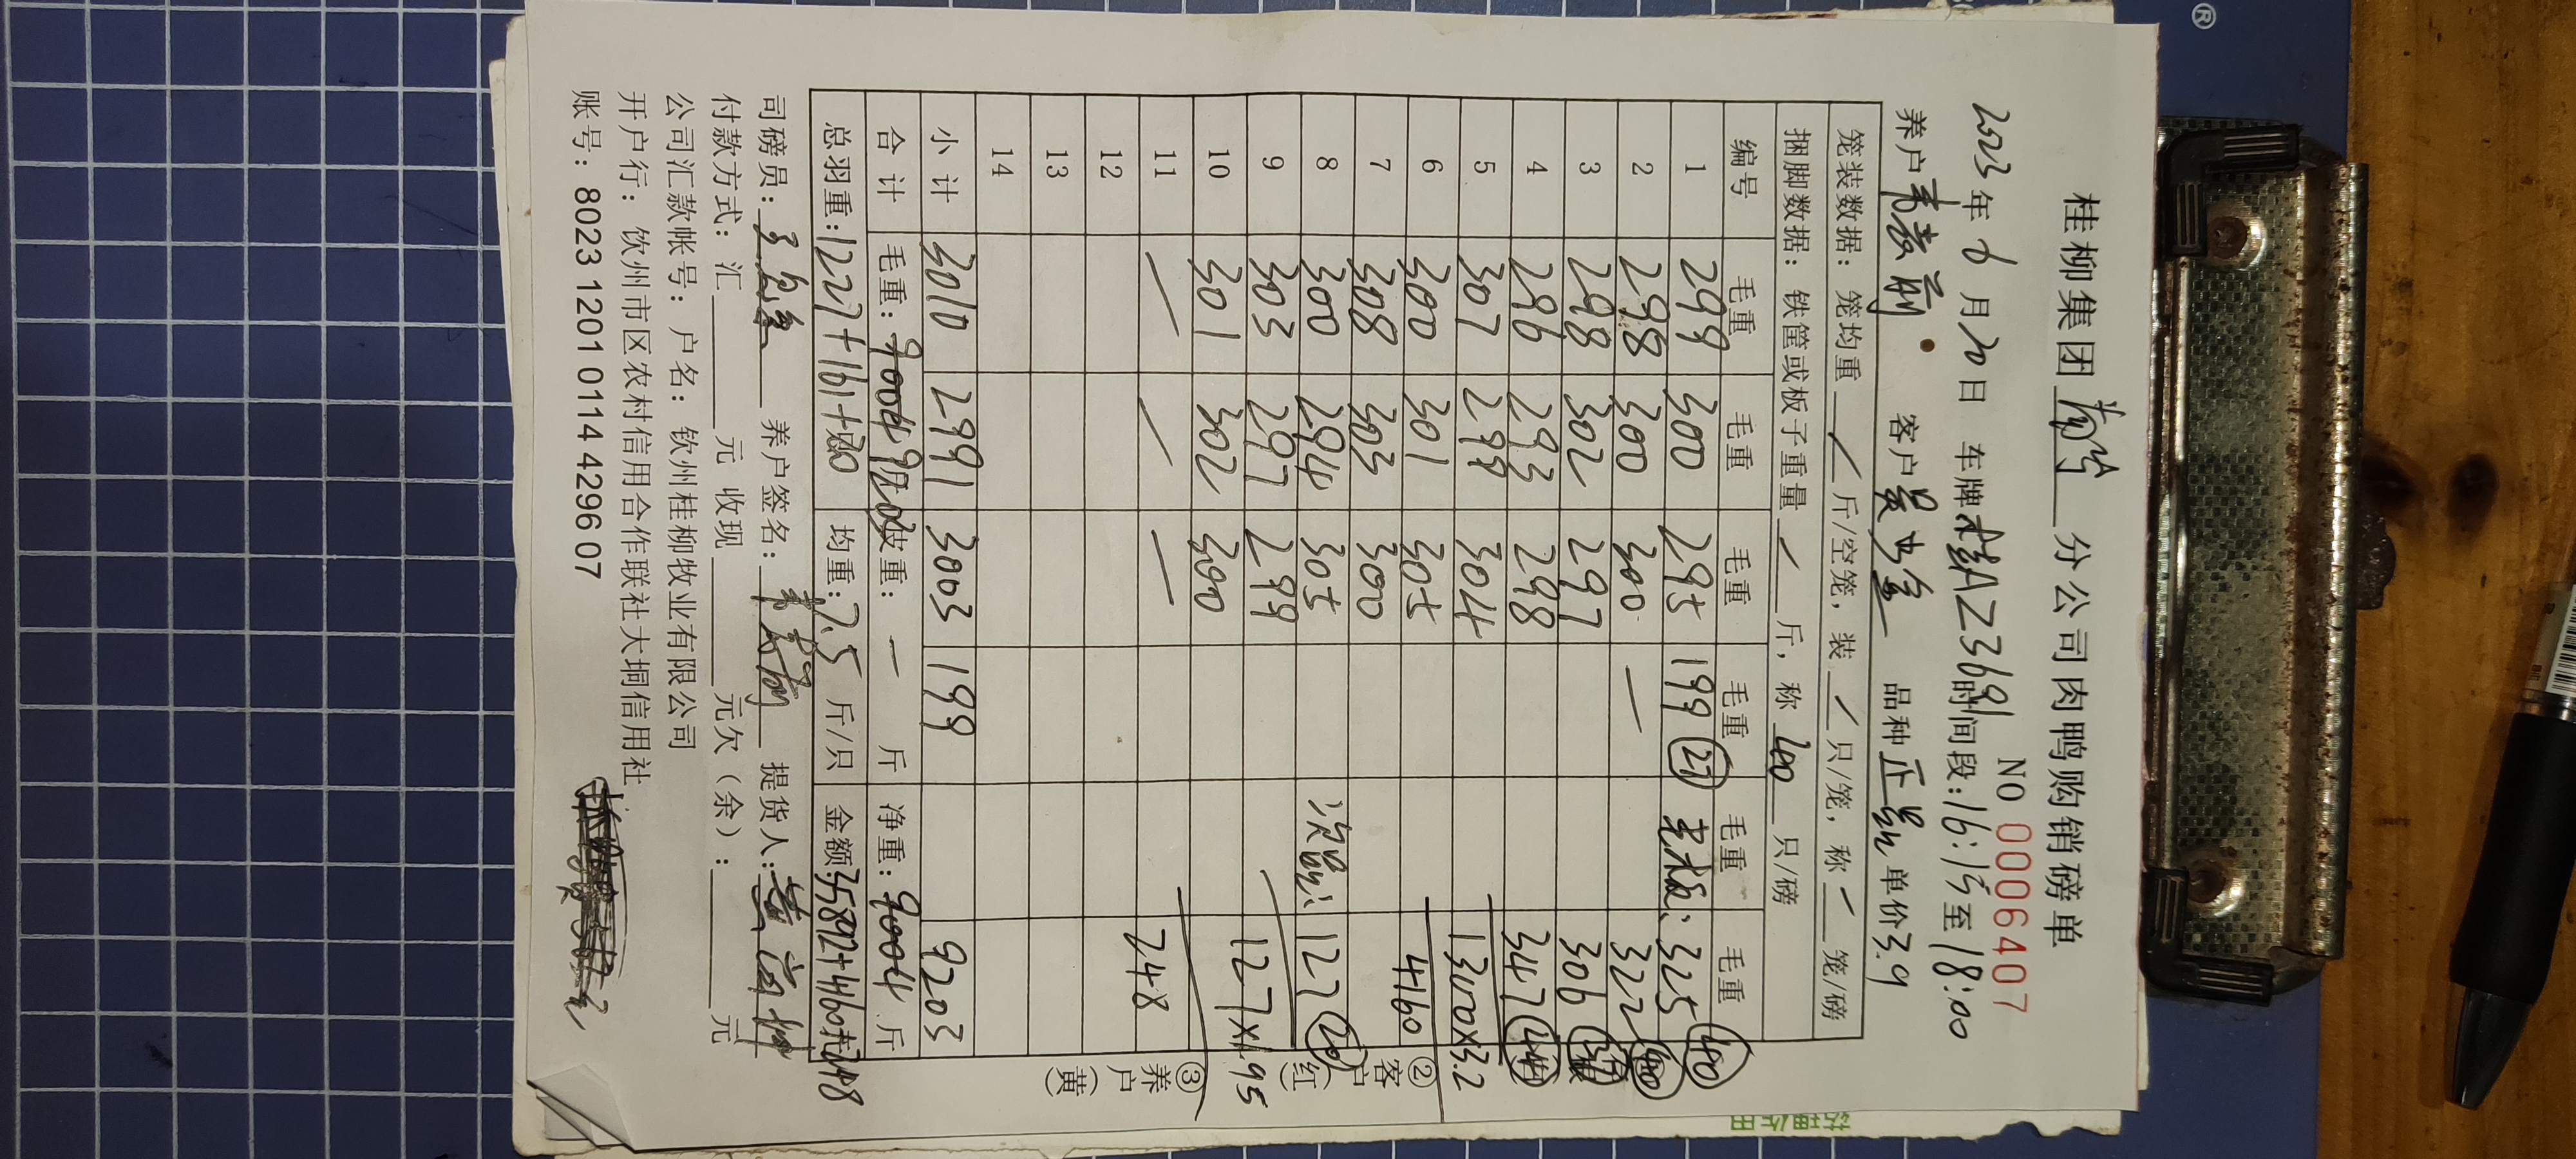 桂柳集团 分公司肉鸭购销磅单
NO 0006407
2023年6月20日 车牌桂AZ3691时间段:16:15至18:00
养户 客户 品种正品 单价3.9
笼装数据: 笼均重 / 斤/空笼, 装 / 只/笼, 称 / 笼/磅
捆脚数据: 铁筐或板子重量 / 斤, 称 40 只/磅
编号 毛重 毛重 毛重 毛重 毛重 毛重
1 299 300 295 199 (27) 老板: 325 (40)
2 298 300 300 — 322 (40)
3 298 302 297 306
4 296 293 298 347
5 307 299 304 1300×3.2
6 300 301 305 4160
7 308 303 300
8 300 294 305 次品: 127 (20)
9 303 297 299 127×1.95
10 301 302 300
11 / / —
12 248
13
14
小计 3010 2991 3003 199 9203
合计 毛重: 9004 9203 皮重: — 斤 净重: 9004 斤
总羽重: 1227+161+20 均重: 7.5 斤/只 金额35892+4160+248
司磅员: 养户签名: 提货人:
付款方式: 汇 元 收现 元 元欠(余): 元
公司汇款帐号: 户名: 钦州桂柳牧业有限公司
开户行: 钦州市区农村信用合作联社大垌信用社
账号: 8023 1201 0114 4296 07
②客户(红)
③养户(黄)